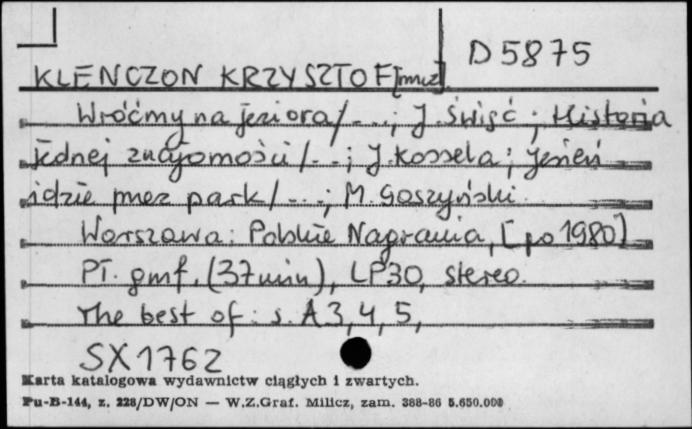 D 5875
KLENCZON KRZYSZTOF [muz]
Wróćmy na jeziora / ...; J. Święć ; Historia
jednej znajomości / ...; J. Kossela ; Jesień
idzie przez park / ...; M. Goszyński.
Warszawa : Polskie Nagrania, [po 1980]
Pł. gmf. (37 min), LP30, stereo.
The best of : s. A 3, 4, 5,
SX 1762
Karta katalogowa wydawnictw ciągłych i zwartych.
Pu-B-144, z. 228/DW/ON — W.Z.Graf. Milicz, zam. 388-86 5.650.000